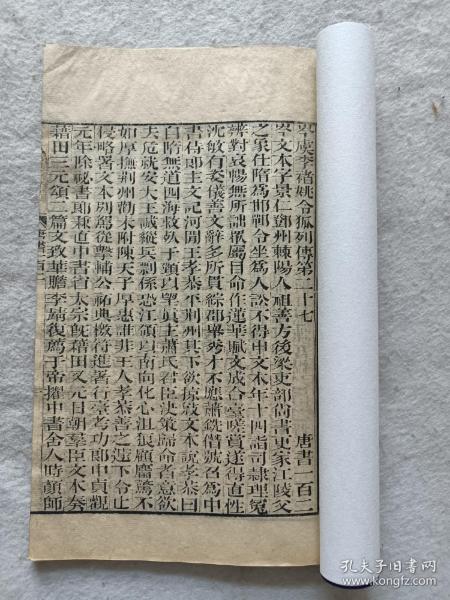 岑虞李褚姚令狐列傳第二十七 唐書一百二
岑文本字景仁鄧州棘陽人祖善方後梁吏部尚書更家江陵父
之象仕隋為邯鄲令坐為人訟不得申文本年十四詣司隸理冤
辨對哀暢無所詘眾屬目命作蓮華賦文成合臺嗟賞遂得直性
沈敏有姿儀善文辭多所貫綜郡舉秀才不應蕭銑僭號召為中
書侍郎主文記河間王孝恭平荊州其下欲掠敓文本說孝恭曰
自隋無道四海救死于頸以望真主蕭氏君臣決策歸命者意欲
去危就安大王誠縱兵剽係恐江嶺以南向化心沮狼顧麕驚不
如厚撫荊州勸未附陳天子厚惠誰非王人孝恭善之遽下令止
侵略署文本別駕從擊輔公祏典檄符進署行臺考功郎中貞觀
元年除祕書郎兼直中書省太宗既藉田又元日朝羣臣文本奏
藉田三元頌二篇文致華贍李靖復薦于帝擢中書舍人時顏師
唐書一百二
孔夫子旧书网